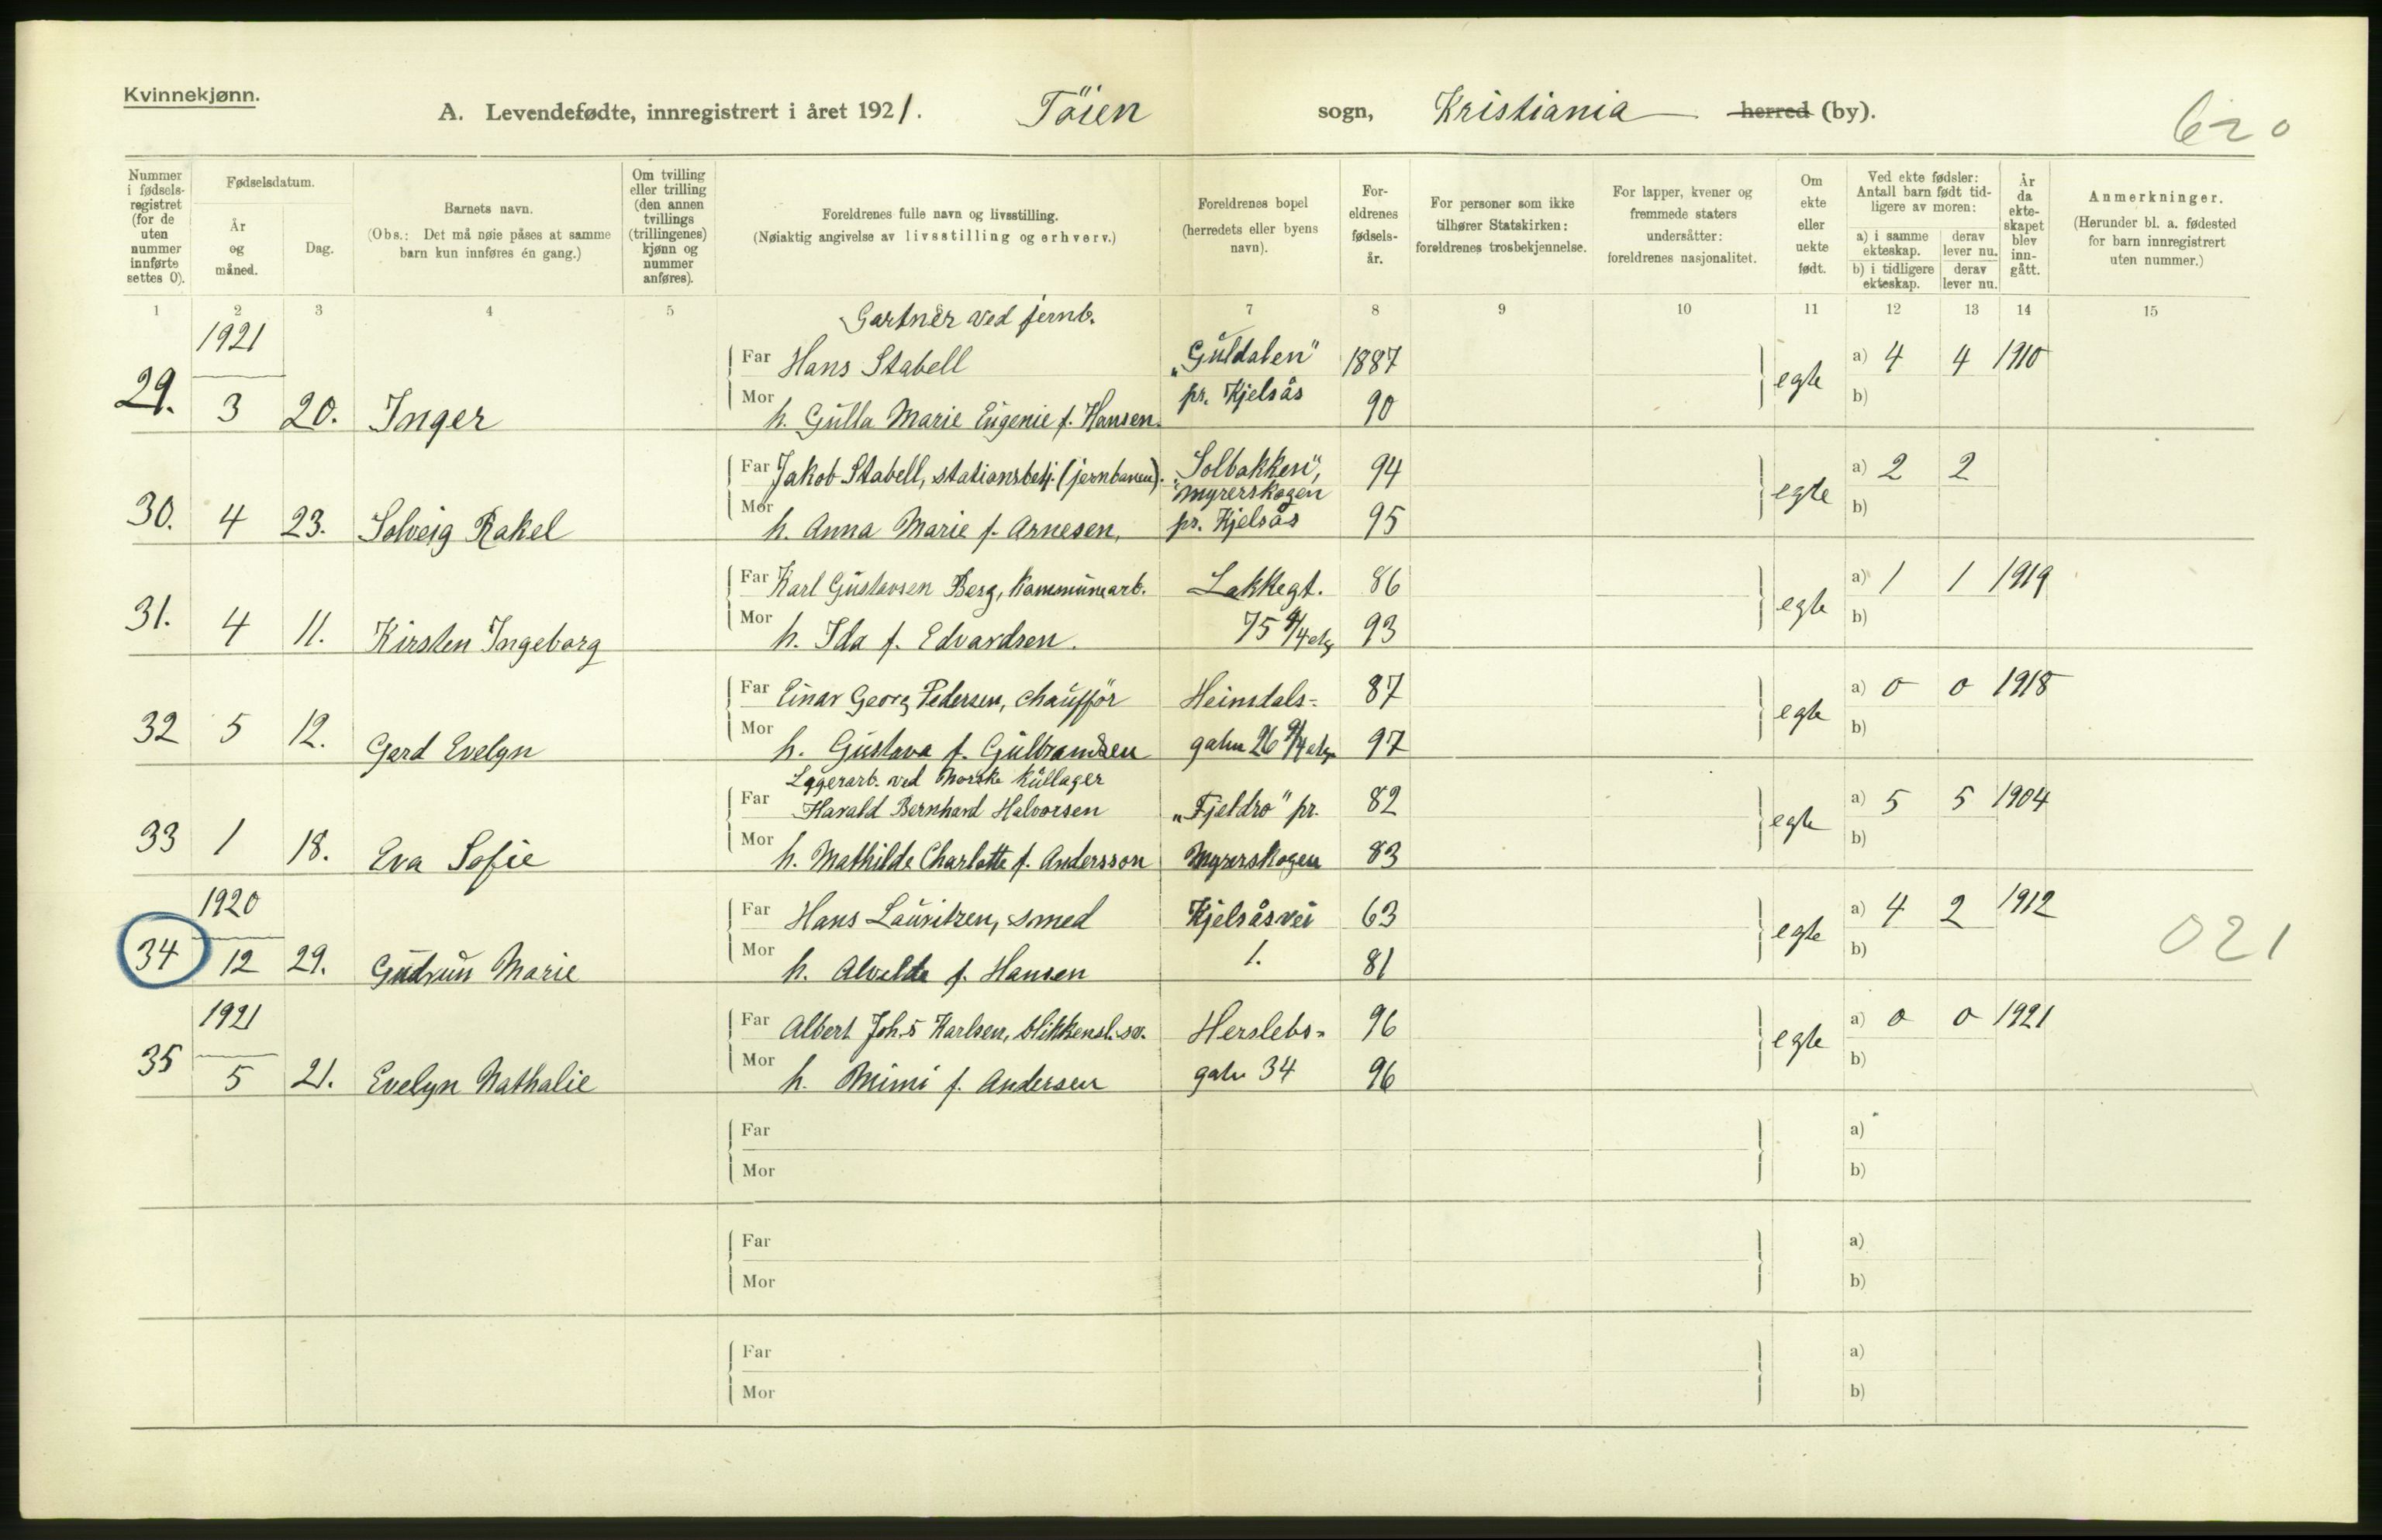 Kvinnekjønn.
A. Levendefødte, innregistrert i året 1921. Töien sogn, Kristiania herred (by).
620
Nummer i fødselsregistret (for de uten nummer innførte settes 0).
Fødselsdatum.
År og måned.
Dag.
Barnets navn.
(Obs.: Det må nøie påses at samme barn kun innføres én gang.)
Om tvilling eller trilling (den annen tvillings (trillingenes) kjønn og nummer anføres).
Foreldrenes fulle navn og livsstilling.
(Nøiaktig angivelse av livsstilling og erhverv.)
Foreldrenes bopel (herredets eller byens navn).
Foreldrenes fødselsår.
For personer som ikke tilhører Statskirken: foreldrenes trosbekjennelse.
For lapper, kvener og fremmede staters undersåtter: foreldrenes nasjonalitet.
Om ekte eller uekte født.
Ved ekte fødsler: Antall barn født tidligere av moren:
a) i samme ekteskap. derav lever nu.
b) i tidligere ekteskap. derav lever nu.
År da ekteskapet blev inngått.
Anmerkninger.
(Herunder bl. a. fødested for barn innregistrert uten nummer.)
1 2 3 4 5 7 8 9 10 11 12 13 14 15
1921 Gartner ved jernb.
Far Hans Stabell „Guldalen" 1887 a) 4 4 1910
29. 3 20. Inger Mor h. Gulla Marie Eugenie f. Hansen. pr. Kjelsås 90 egte b)
Far Jakob Stabell, stationsbetj. (jernbanen). „Solbakken", 94 a) 2 2
Myrerskogen
30. 4 23. Solveig Rakel Mor h. Anna Marie f. Arnesen, pr. Kjelsås 95 egte b)
Far Karl Gustavsen Berg, Kommunearb. Lakkegt. 86 a) 1 1 1919
31. 4 11. Kirsten Ingeborg Mor h. Ida f. Edvardsen. 75 93 egte b)
Far Einar Georg Pedersen, chauffør Heimdals- 87 a) 0 0 1918
32 5 12. Gerd Evelyn Mor h. Gustava f. Gulbrandsen gaten 26 97 egte b)
Lagerarb. ved Norske Kullager
Far Harald Bernhard Halvorsen „Fjeldro" pr. 82 a) 5 5 1904
33 1 18. Eva Sofie Mor h. Mathilde Charlotte f. Andersson Myrerskogen 83 egte b)
1920
Far Hans Lauritzen, smed Kjelsåsvei 63 a) 4 2 1912
34 12 29. Gudrun Marie Mor h. Alvilde f. Hansen 1. 81 egte b) 021
1921
Far Albert Joh.s Karlsen, blikkensl.sv. Herslebs- 96 a) 0 0 1921
35 5 21. Evelyn Nathalie Mor h. Mimi f. Andersen gate 34 96 egte b)
Far a)
Mor b)
Far a)
Mor b)
Far a)
Mor b)